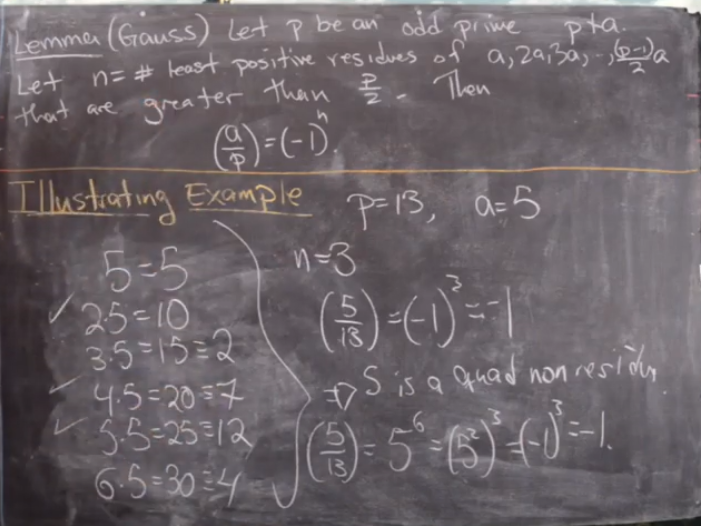 Lemma (Gauss) Let p be an odd prime p∤a.
Let n= # least positive residues of a, 2a, 3a, ..., (p-1)/2 a
that are greater than p/2. Then
(a/p)=(-1)^n.
Illustrating Example p=13, a=5
5=5
✓ 2·5=10
3·5=15≡2
✓ 4·5=20≡7
✓ 5·5=25≡12
6·5=30≡4
n=3
(5/13)=(-1)^3=-1
⇒ 5 is a quad non residue.
(5/13)=5^6=(5^2)^3=(-1)^3=-1.